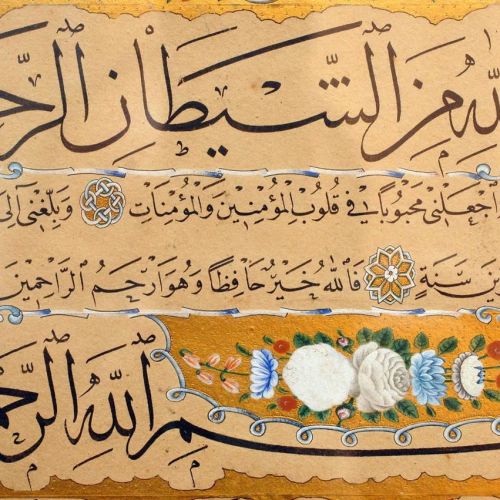 لله مِنَ الشَّيْطَانِ الرَّحـ
اجْعَلْنِي مَحْبُوبًا فِي قُلُوبِ الْمُؤْمِنِينَ وَالْمُؤْمِنَاتِ وَبَلِّغْنِي آلى
ين سَنَةٍ فَاللهُ خَيْرٌ حَافِظًا وَهُوَ أَرْحَمُ الرَّاحِمِينَ
ـسم اللهِ الرَّحْمـ